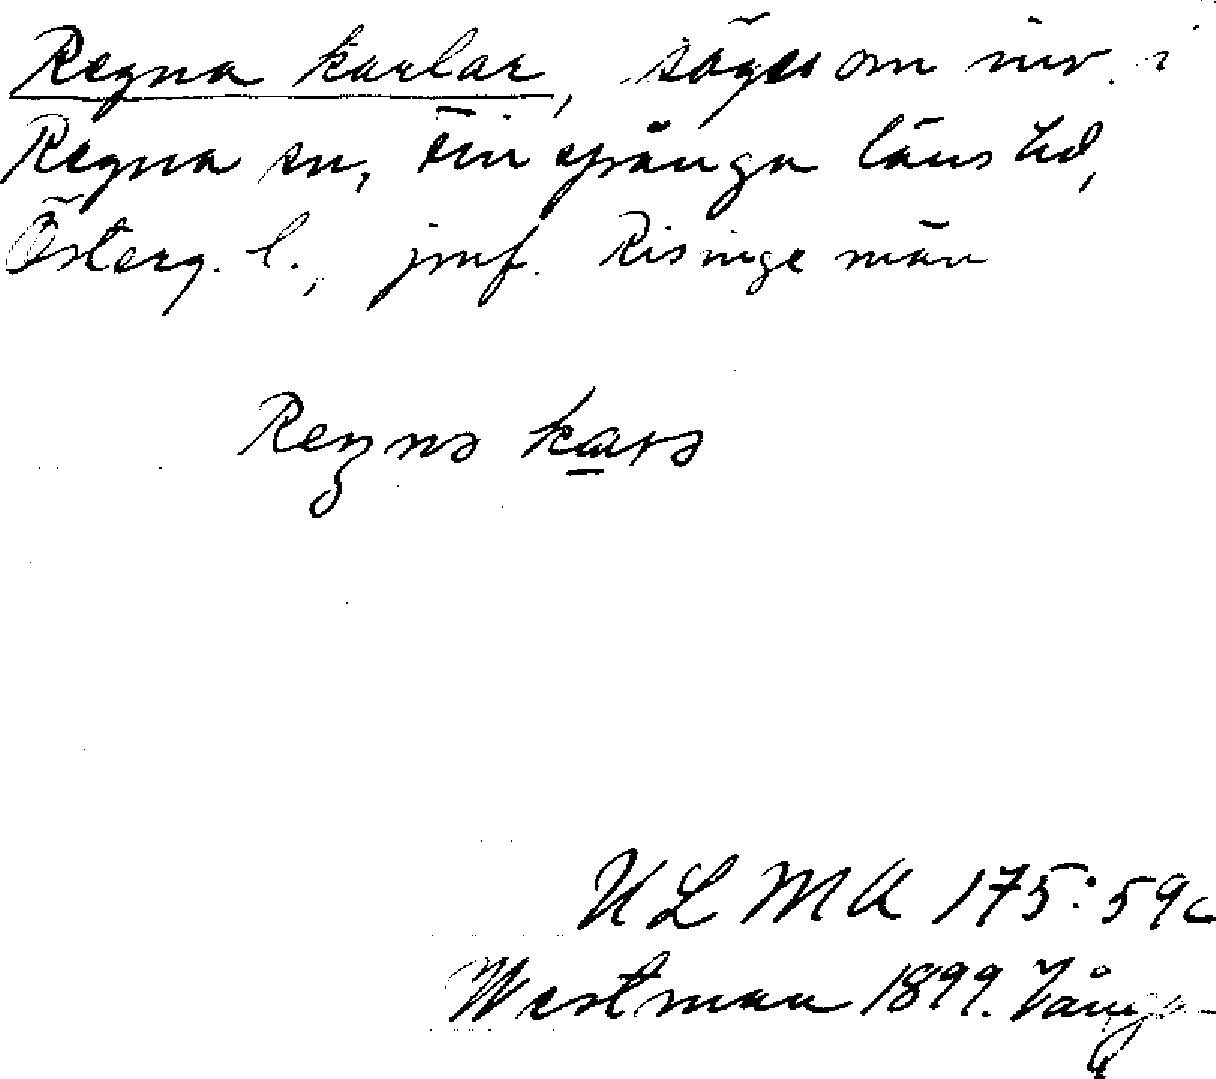 Regna karlar, säges om inv. i
Regna sn, Finspånga läns hd,
Österg. l., jmf. Risinge män
Regna kara
ULMA 175:59c
Westman 1899. Vånga